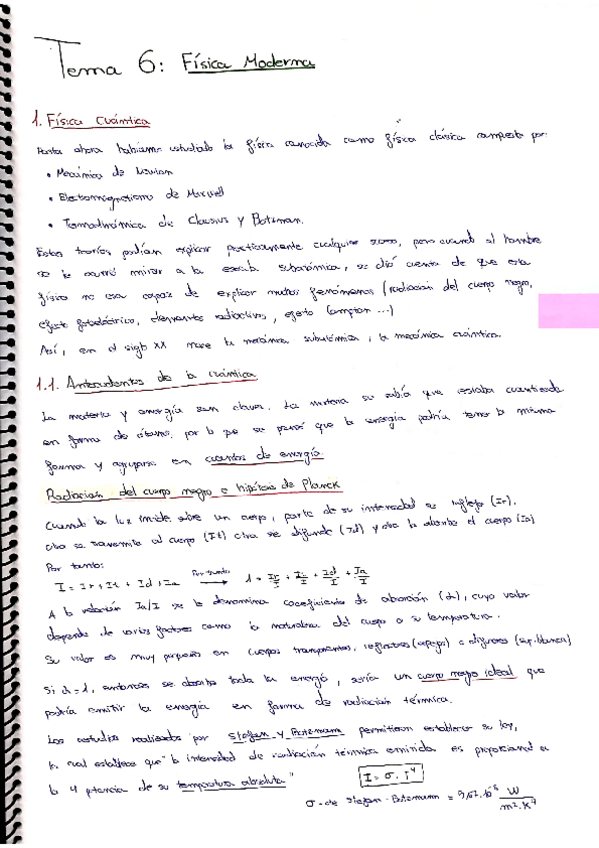 Tema 6: Física Moderna
1. Física Cuántica
Hasta ahora habíamos estudiado la física conocida como física clásica compuesta por:
• Mecánica de Newton
• Electromagnetismo de Maxwell
• Termodinámica de Clausius y Boltzman.
Estas teorías podían explicar practicamente cualquier, pero cuando al hombre
se le ocurrió mirar a la escala subatómica, se dió cuenta de que esta
física no era capaz de explicar muchos fenómenos (radiacion del cuerpo negro,
efecto fotoeléctrico, elementos radiactivos, efecto Compton ...)
Así, en el siglo XX nace la mecánica subatómica, la mecánica cuántica.
1.1. Antecedentes de la cuántica
La materia y energía son claves. La materia se sabía que estaba cuantizada
en forma de átomos, por lo que se pensó que la energía podría tener la misma
forma y agruparse en cuantos de energía.
Radiación del cuerpo negro e hipótesis de Planck
Cuando la luz incide sobre un cuerpo, parte de su intensidad se refleja (Ir),
otra se transmite al cuerpo (It) otra se difunde (Id) y otra la absorbe el cuerpo (Ia)
Por tanto:
I = Ir + It + Id + Ia Por tanto → 1 = Ir/I + It/I + Id/I + Ia/I
A la relación Ia/I se la denomina coeficiente de absorción (α), cuyo valor
depende de varios factores como la naturaleza del cuerpo o su temperatura.
Su valor es muy pequeño en cuerpos transparentes, reflectores (espejos) o difusores (sup. blancas)
Si α = 1, entonces se absorbe toda la energía, sería un cuerpo negro ideal que
podría emitir la energía en forma de radiación térmica.
Los estudios realizados por Stefan y Boltzmann permitieron establecer su ley,
la cual establece que "la intensidad de radiación térmica emitida es proporcional a
la 4 potencia de su temperatura absoluta"
I = σ · T⁴
σ = cte Stefan - Boltzmann = 5,67·10⁻⁸ W/m²·K⁴